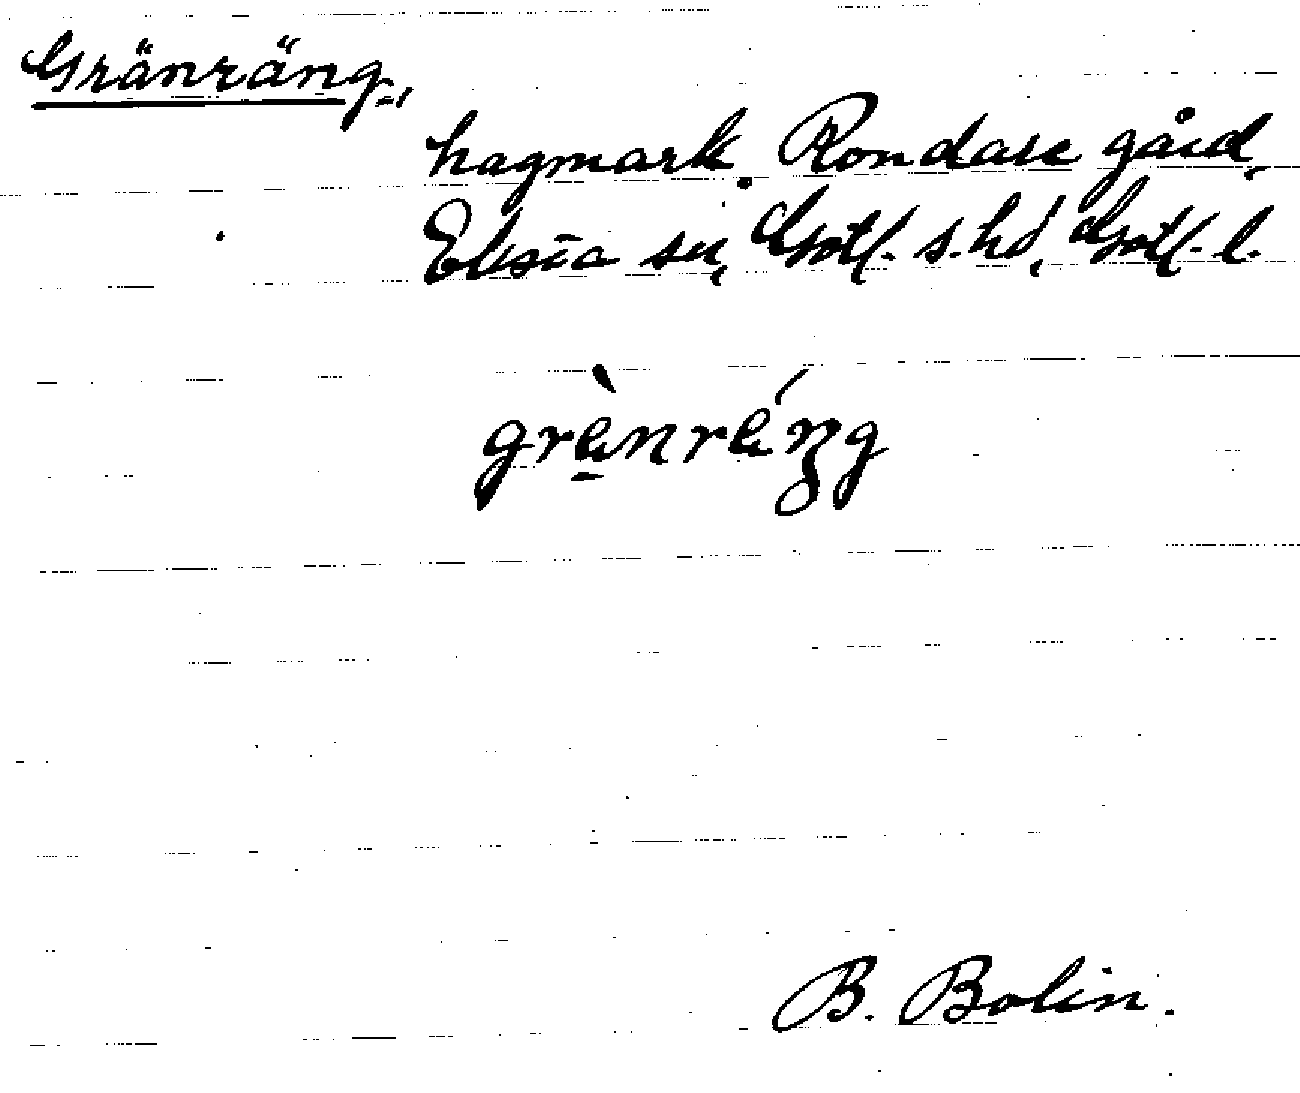 Gränräng,
hagmark. Rondarve gård,
Eksta sn, Gotl. s. hd, Gotl. l.
grànrǽng
B. Bolin.